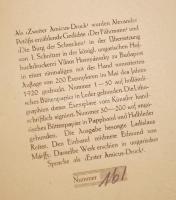 Als »Zweiter Amicus-Druck« wurden Alexander
Petőfis erzählende Gedichte »Der Fährmann« und
»Die Burg der Schrecken« in der Übersetzung von
I. Schnitzer in der königl. ungarischen Hof-
buchdruckerei Viktor Hornyánszky zu Budapest
in einer einmaligen mit der Hand numerierten
Auflage von 200 Exemplaren im Mai des Jahres
1920 gedruckt. Nummer 1–30 auf holländi-
schem Büttenpapier in Leder gebunden. Die Litho-
graphien dieser Exemplare vom Künstler hand-
schriftlich signiert. Nummer 30–200 auf unga-
rischem Büttenpapier in Pappband und Halbleder
gebunden. Die Ausgabe besorgte Ladislaus
Reiter. Den Einband zeichnete Edmund von
Márffy. Dasselbe Werk erschien in ungarischer
Sprache als »Erster Amicus-Druck«.
Nummer 161.